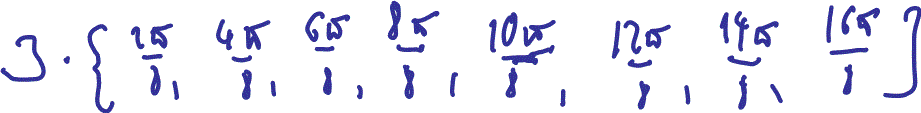 3 · { 2π/8, 4π/8, 6π/8, 8π/8, 10π/8, 12π/8, 14π/8, 16π/8 ]